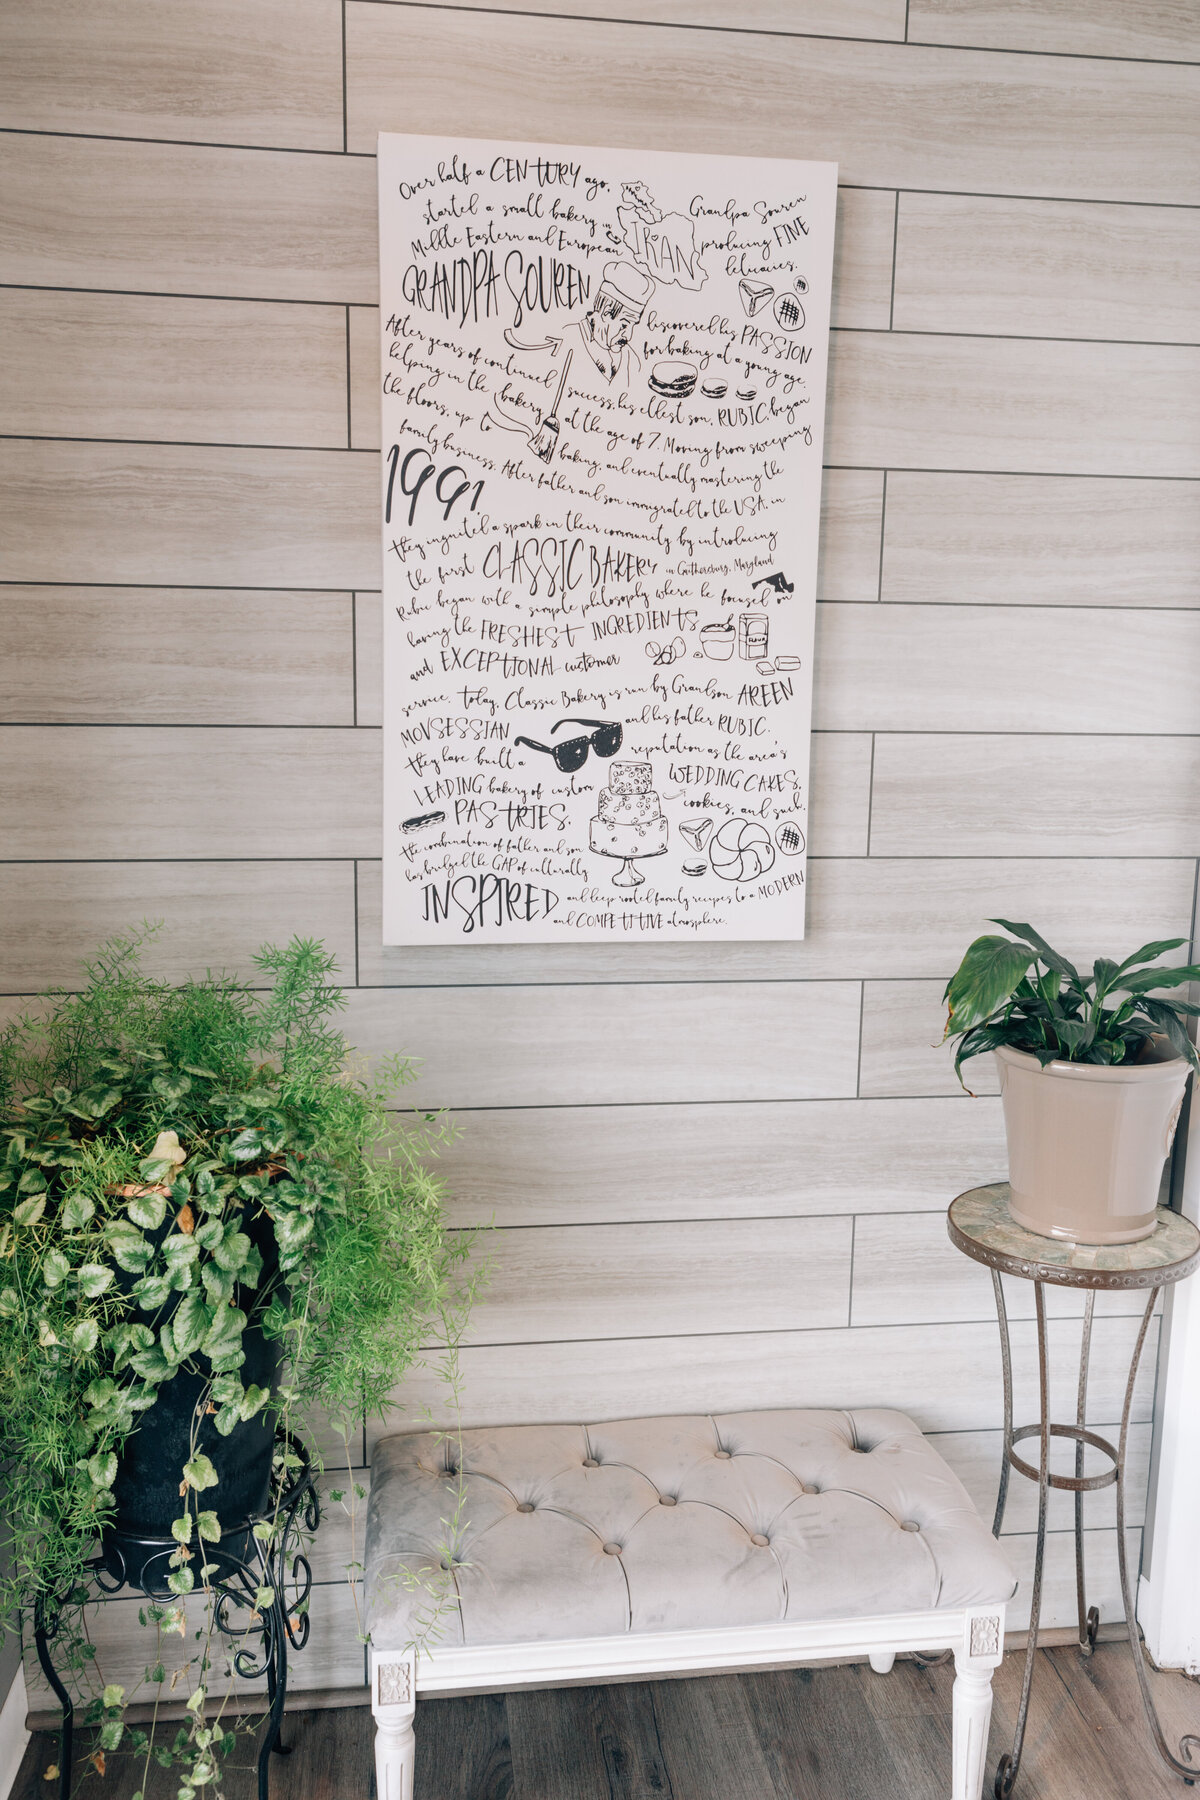 Over half a CENTURY ago,
Grandpa Souren
started a small bakery in
IRAN
producing FINE
Middle Eastern and European
delicacies.
GRANDPA SOUREN
discovered his PASSION
for baking at a young age.
After years of continued success, his eldest son, RUBIC, began
helping in the bakery at the age of 7. Moving from sweeping
the floors, up to baking, and eventually mastering the
family business. After father and son immigrated to the USA, in
1991,
they ingnited a spark in their community by introducing
the first CLASSIC BAKERY in Gaithersburg, Maryland
Rubic began with a simple philosophy where he focused on
having the FRESHEST INGREDIENTS
FLOUR
and EXCEPTIONAL customer
service. Today, Classic Bakery is run by Grandson AREEN
MOVSESSIAN and his father RUBIC.
they have built a reputation as the area's
LEADING bakery of custom WEDDING CAKES,
PASTRIES, cookies, and such.
the combination of father and son
has bridged the GAP of culturally
INSPIRED and deep rooted family recipes to a MODERN
and COMPETITIVE atmosphere.